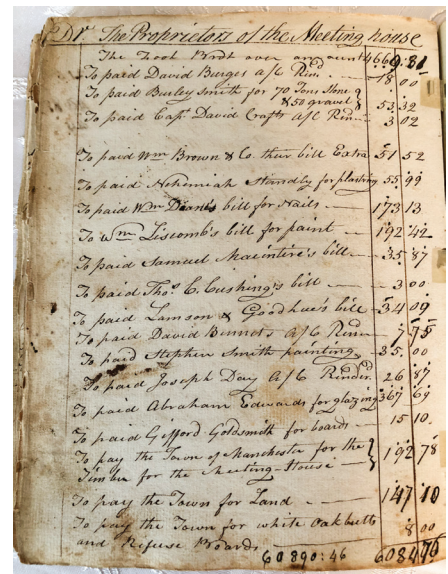 Dr The Proprietors of the Meeting house
The Foot Brot over amount 4669.81
To paid David Burges a/c Rind. 18 00
To paid Burley Smith for 70 Tons Stone
& 50 gravel 53.32
To paid Capt. David Crafts a/c Rind 3 02
To paid Wm Brown & Co. their bill Extra 51 52
To paid Nehemiah Standly for plastring 55 99
To paid Wm Dean's bill for Nails 173 13
To Wm Liscomb's bill for paint 192 42
To paid Samuel Macintire's bill 35 87
To paid Thos. C. Cushing's bill 3 00
To paid Lamson & Goodhue's bill 34 09
To paid David a/c Rind 7 75
To paid Stephen Smith painting 35.00
To paid Joseph Day A/C Rinderd 26 87
To paid Abraham Edwards for glazing 367 69
To paid Gifford Goldsmith for boards 15 10.
To pay the Town of Manchester for the
Timber for the Meeting-House 192 78
To pay the Town for Land 147 10
To pay the Town for white Oak butts
and Refuse Boards 8 00
60890:46 608476